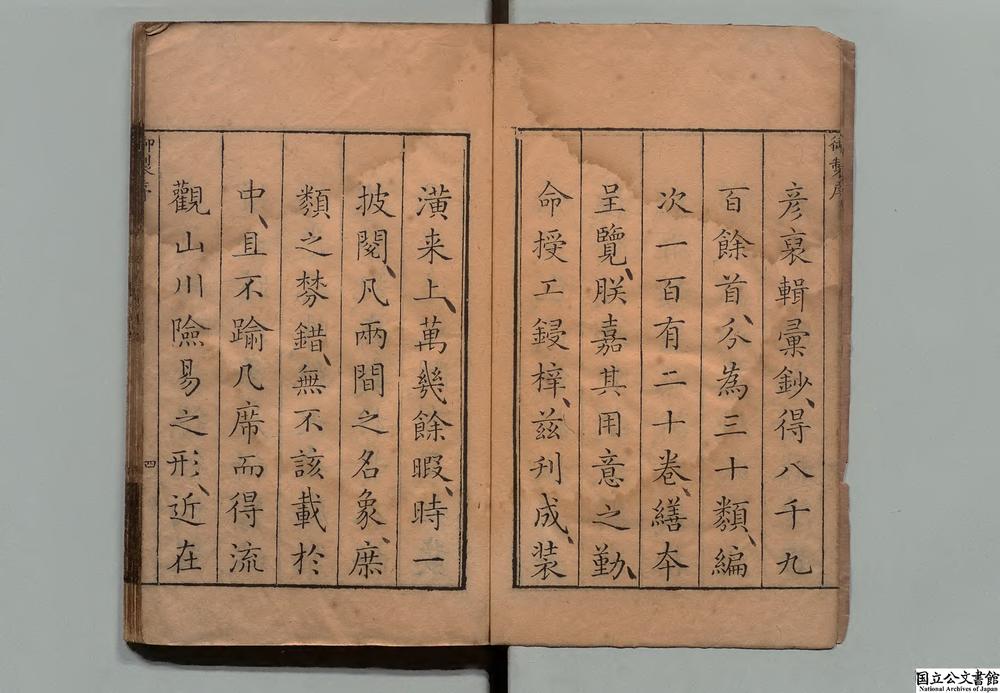 御製序
彦裒輯彙鈔、得八千九
百餘首、分為三十類、編
次一百有二十卷、繕本
呈覽、朕嘉其用意之勤、
命授工鋟梓、茲刋成、装
潢来上、萬幾餘暇、時一
披閱、凡兩間之名象、庶
類之棼錯、無不該載於
中、且不踰几席而得流
觀山川險易之形、近在
御製序
四
国立公文書館
National Archives of Japan